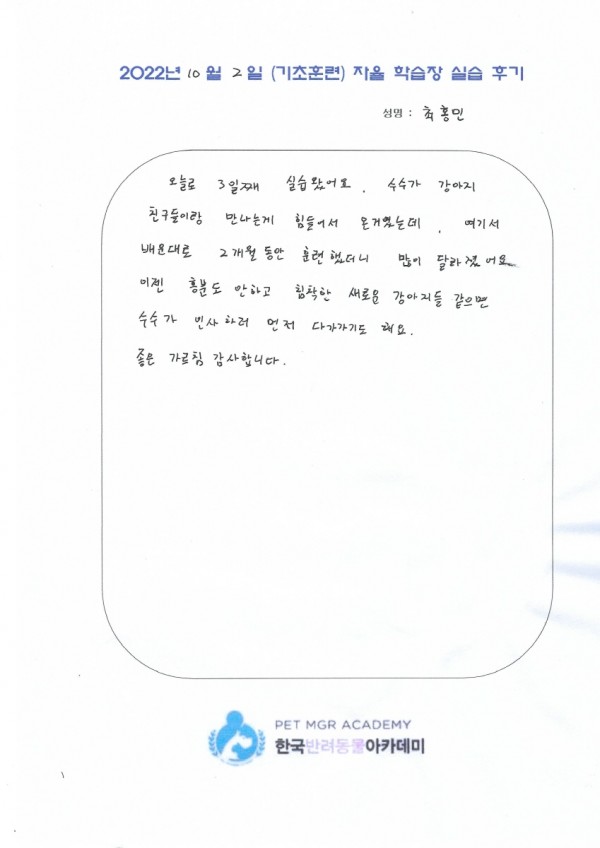 2022년 10월 2일 (기초훈련) 자율 학습장 실습 후기
성명 : 최홍민
오늘로 3일째 실습왔어요. 수수가 강아지
친구들이랑 만나는게 힘들어서 온거였는데, 여기서
배운대로 2개월 동안 훈련했더니 많이 달라졌어요
이젠 흥분도 안하고 침착한 새로운 강아지들 같으면
수수가 인사하러 먼저 다가가기도 해요.
좋은 가르침 감사합니다.
PET MGR ACADEMY
한국반려동물아카데미